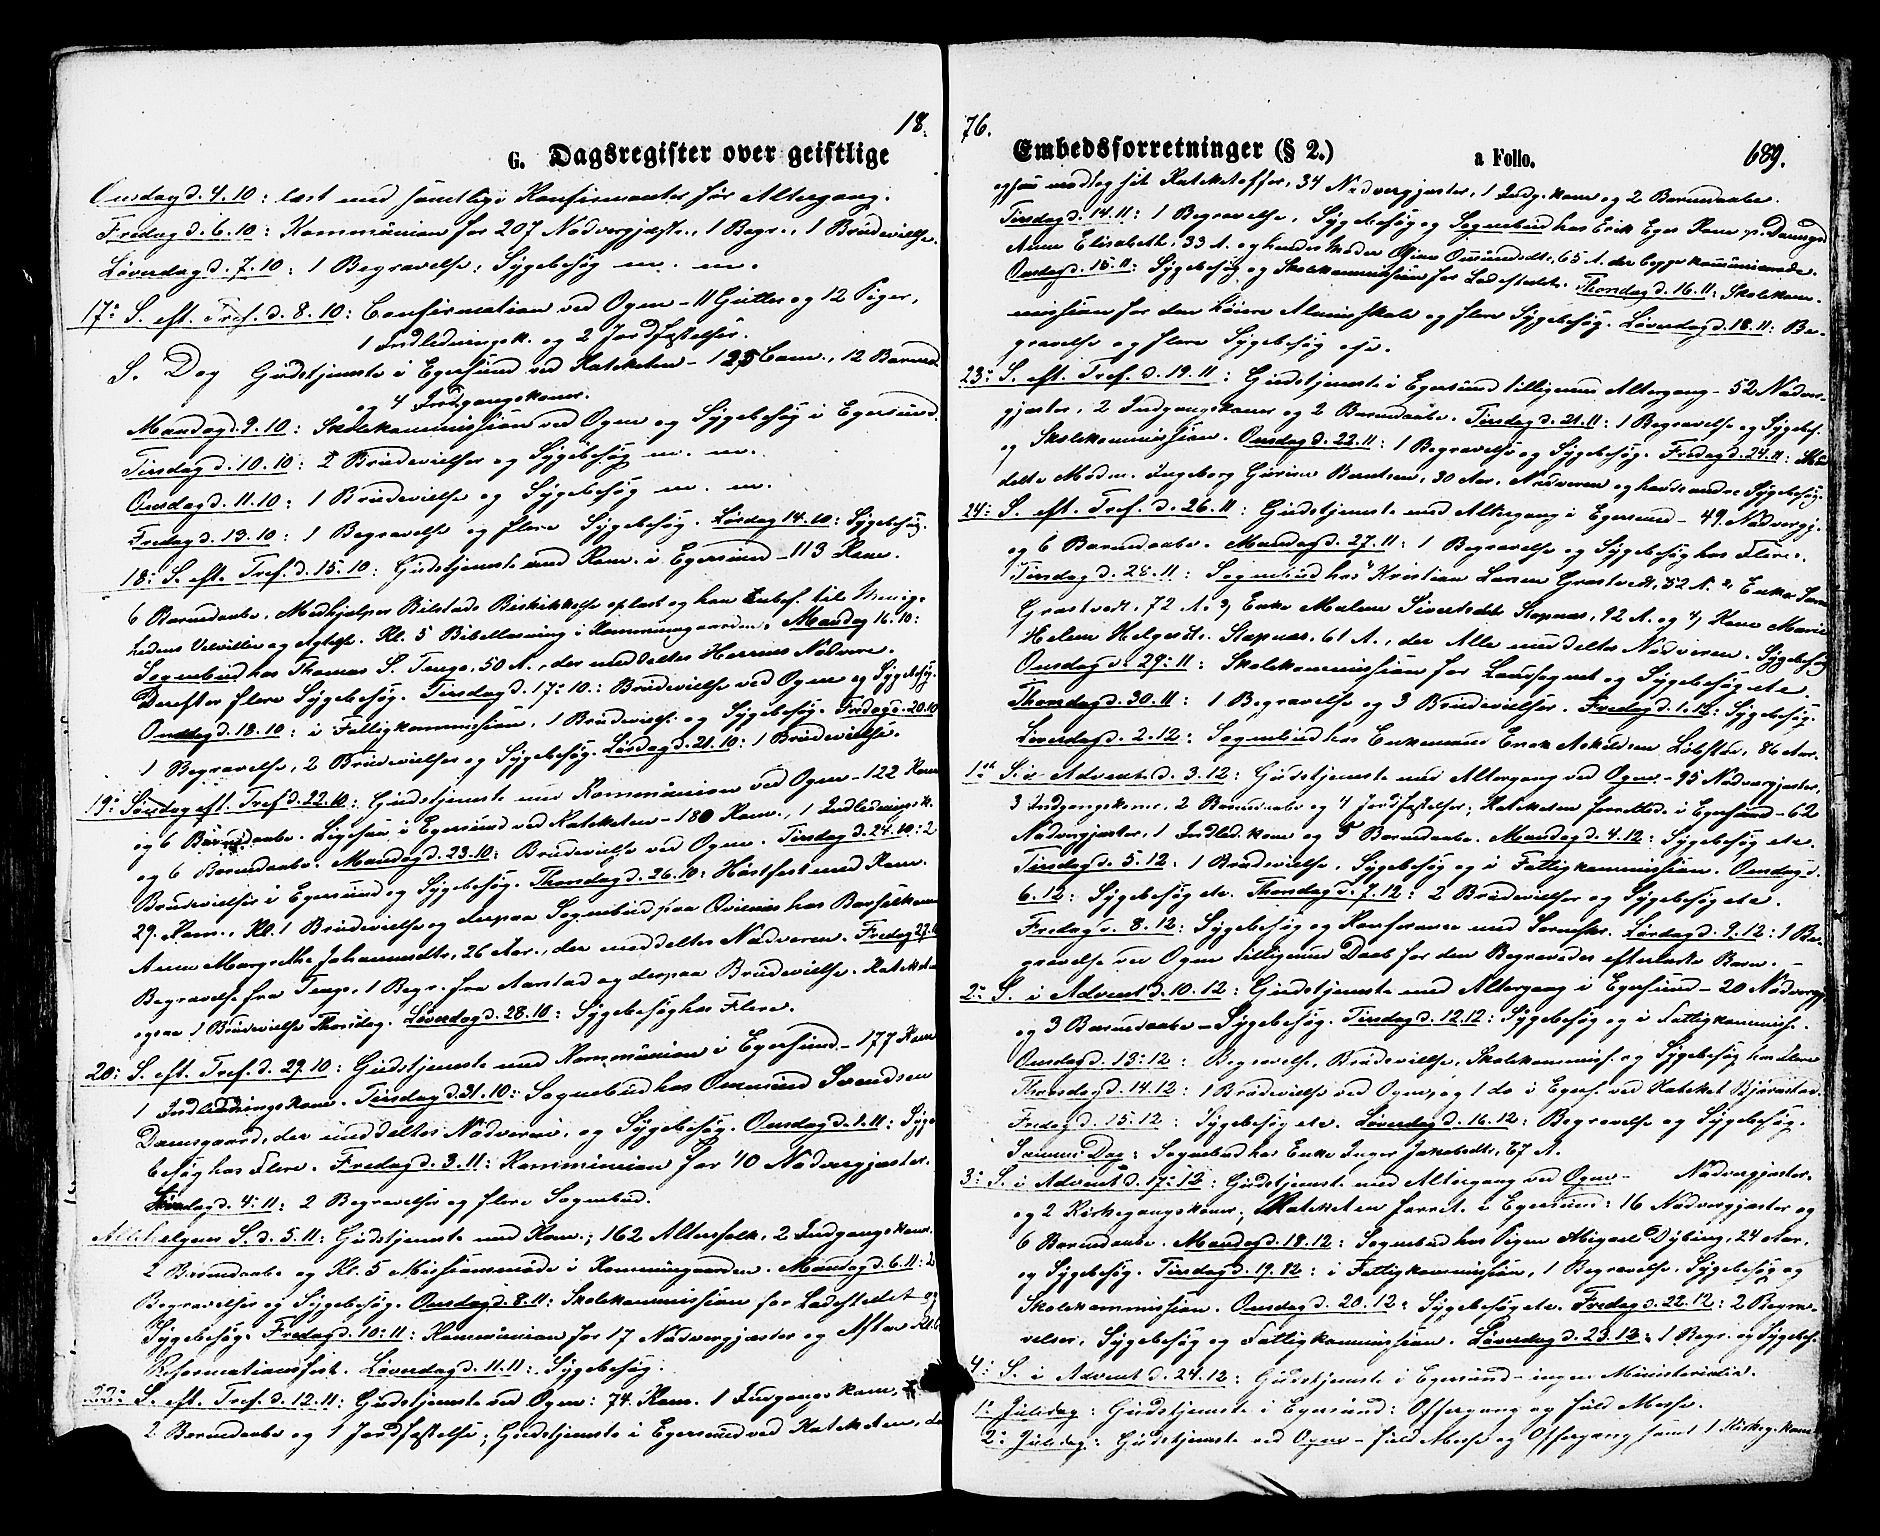 18.
G. Dagsregister over geistlige
Onsdag d. 4.10: læst med samtlige Konfirmanter før Altergang.
Fredag d. 6.10: Kommünion for 207 Nadvergjæste, 1 Begr., 1 Brudevielse.
Løverdag d. 7.10: 1 Begravelse, Sygebesøg m. m.
17de S. eft. Tref. d. 8.10: Confirmation ved Ogne - 11 Gutter og 12 Piger,
1 Indledningsk. og 2 Jordfæstelser.
S. Dag Gudstjeneste i Egersund ved Kateketen - 125 Com., 12 Barned.
og 4 Indgangskoner.
Mandag d. 9.10: Skolekommission ved Ogne og Sygebesøg i Egersund.
Tirsdag d. 10.10: 2 Brudevielser og Sygebesøg m. m.
Onsdag d. 11.10: 1 Brudevielse og Sygebesøg m. m.
Fredag d. 13.10: 1 Begravelse og flere Sygebesøg. Lørdag 14.10: Sygebesøg.
18: S. eft. Tref. d. 15.10: Gudstjeneste med Kom. i Egersund - 113 Kom.
6 Barnedaabe, Medhjælper Bilstads Beskikkelse oplæst og han anbef. til Menig-
hedens Velvillie og Agtelse. Kl. 5 Bibellæsning i Kommunegaarden. Mandag 16.10:
Sognebud hos Thomas S. Tengs, 50 A., der meddeltes Herrens Nadvere.
Derefter flere Sygebesøg. Tirsdag d. 17.10: Brudevielse ved Ogne og Sygebesøg.
Onsdag d. 18.10: i Fattigkommission, 1 Brudeviels. og Sygebesøg. Fredag d. 20.10
1 Begravelse, 2 Brudevielser og Sygebesøg. Lørdag d. 21.10: 1 Brudevielse.
19: Søndag eft. Tref. d. 22.10: Gudstjeneste med Kommünion ved Ogne - 122 Kom.
og 6 Barnedaabe. Ligesaa i Egersund ved Kateketen - 180 Kom., 1 Indledningsk.
og 6 Barnedaabe. Mandag d. 23.10: Brudevielse ved Ogne. Tirsdag d. 24.10: 2
Brudevielser i Egersund og Sygebesøg. Thorsdag d. 26.10: Høstfest med Kom.
29. Kom., Kl. 1 Brudevielse og derpaa Sognebud paa Qvinnes hos Barselkone
Anne Margrethe Johannesdtr, 26 Aar, der meddeltes Nadveren. Fredag 27.10
Begravelse fra Tengs, 1 Begr. fra Aarstad og derpaa Brudevielse. Kateketen
ogsaa 1 Brudevielse Thorsdag. Løverdag d. 28.10: Sygebesøg hos Flere.
20: S. eft. Tref. d. 29.10: Gudstjeneste med Kommünion i Egersund - 177 Kom.
1 Indledningskone. Tirsdag d. 31.10: Sognebud hos Ommund Svendsen
Damsgaard, der meddeltes Nadveren, og Sygebesøg. Onsdag d. 1.11: Syge-
besøg hos Flere. Fredag d. 3.11: Kommünion for 40 Nadvergjæster.
Lørdag d. 4.11: 2 Begravelser og flere Sognebud.
Allehelgens S. d. 5.11: Gudstjeneste med Kom.; 162 Altersfolk, 2 Indgangskoner.
2 Barnedaabe og Kl. 5 Missionsmøde i Kommünegaarden. Mandag d. 6.11: 2
Begravelser og Sygebesøg. Onsdag d. 8.11: Skolekommission for Ladestedet og
Sygebesøg. Fredag d. 10.11: Kommünion for 17 Nadvergjæster og Aften Kl. 6
Reformationsfest. Løverdag d. 11.11: Sygebesøg.
22: S. eft. Tref. d. 12.11: Gudstjeneste ved Ogne: 74 Kom. 1 Indgangskone,
2 Barnedaabe og 1 Jordfæstelse; Gudstjeneste i Egersund ved Kateketen, der
76.
Embedsforretninger (§ 2.)
a Folio.
689.
ogsaa modtog sit Kateketoffer, 34 Nadvergjæster, 1 Indg.kone og 2 Barnedaabe.
Tirsdag d. 14.11: 1 Begravelse, Sygebesøg og Sognebud hos Erik Eges Kone p. Damsgd
Anne Elisabeth, 33 A. og hendes Moder Ommundsdtr, 65 A. der begge kommunicerede.
Onsdag d. 15.11: Sygebesøg og Skolekommission for Ladestedet. Thorsdag d. 16.11: Skolekom-
mission for den høiere Almueskole og flere Sygebesøg. Løverdag d. 18.11: Be-
gravelse og flere Sygebesøg
23: S. eft. Tref. d. 19.11: Gudstjeneste i Egersund tilligemed Altergang - 52 Nadver-
gjæster, 2 Indgangskoner og 2 Barnedaabe. Tirsdag d. 21.11: 1 Begravelse og Sygebes.
og Skolekommission. Onsdag d. 22.11: 1 Begravelse og Sygebesøg. Fredag d. 24.11:
delte Madm. Ingeborg Gurine Berntsen, 30 Aar, Nadveren og havde andre Sygebesøg.
24: S. eft. Tref. d. 26.11: Gudstjeneste med Altergang i Egersund - 49 Nadvergj.
og 6 Barnedaabe. Mandag d. 27.11: 1 Begravelse og Sygebesøg hos Flere.
Tirsdag d. 28.11: Sognebud hos Kristian Larsen Grastvedt, 52 A. 2, Enke
Grastvedt, 72 A. 3, Enke Malene Sivertsdtr Stapnæs, 92 A. og 4, Kone Marie
Helene Helgesdtr. Stapnæs, 61 A., der Alle meddeltes Nadveren. Sygebesøg
Onsdag d. 29.11: Skolekommission for Landsognet og Sygebesøg etc.
Thorsdag d. 30.11: 1 Begravelse og 3 Brudevielser. Fredag d. 1.12: Sygebesøg.
Løverdag d. 2.12: Sognebud hos Enkemand Enok Askildsen Løbsted, 86 Aar.
1ste S. i Advent d. 3.12: Gudstjeneste med Altergang ved Ogne - 95 Nadvergjæster,
3 Indgangskoner, 2 Barnedaabe og 4 Jordfæstelser; Kateketen forrettede i Egersund - 62
Nadvergjæster, 1 Indled.kone og 5 Barnedaabe. Mandag d. 4.12: Sygebesøg etc.
Tirsdag d. 5.12: 1 Brudevielse, Sygebesøg og i Fattigkommission. Onsdag d.
6.12: Sygebesøg etc. Thorsdag d. 7.12: 2 Brudevielser og Sygebesøg etc.
Fredag d. 8.12: Sygebesøg og Konferance med Sorenskr. Lørdag d. 9.12: 1 Be-
gravelse ved Ogne tilligemed Daab for den Begravedes efterladte Barn. -
2: S. i Advent d. 10.12: Gudstjeneste med Altergang i Egersund - 20 Nadvergj.
og 3 Barnedaabe - Sygebesøg. Tirsdag d. 12.12: Sygebesøg og i Fattigkommiss.
Onsdag d. 13.12: Begravelse, Brudevielse, Skolekommiss. og Sygebesøg hos Flere
Thorsdag d. 14.12: 1 Brudevielse ved Ogne, og 1 do i Egers. ved Kateket Bjørnstad.
Fredag d. 15.12: Sygebesøg etc. Løverdag d. 16.12: Begravelse og Sygebesøg.
Samme Dag: Sognebud hos Enke Inger Jakobsdtr, 67 A.
3: S. i Advent d. 17.12: Gudstjeneste med Altergang ved Ogne - Nadvergjæster.
og 2 Kirkegangskoner; Kateketen forret. i Egersund: 16 Nadvergjæster og
6 Barnedaabe. Mandag d. 18.12: Sognebud hos Pigen Abigael Dybing, 24 Aar,
og Sygebesøg. Tirsdag d. 19.12: i Fattigkommission, 1 Begravelse, Sygebesøg og
Skolekommission. Onsdag d. 20.12: Sygebesøg etc. Fredag d. 22.12: 2 Begra-
velser, Sygebesøg og Fattigkommission. Løverdag d. 23.12: 1 Begr. og Sygebes.
4: S. i Advent d. 24.12: Gudstjeneste i Egersund - ingen Ministerialia.
1ste Juledag: Gudstjeneste i Egersund: Offergang og fuld Messe.
2: Juledag: Gudstjeneste ved Ogne - fuld Messe og Offergang samt 1 Kirkeg.kone